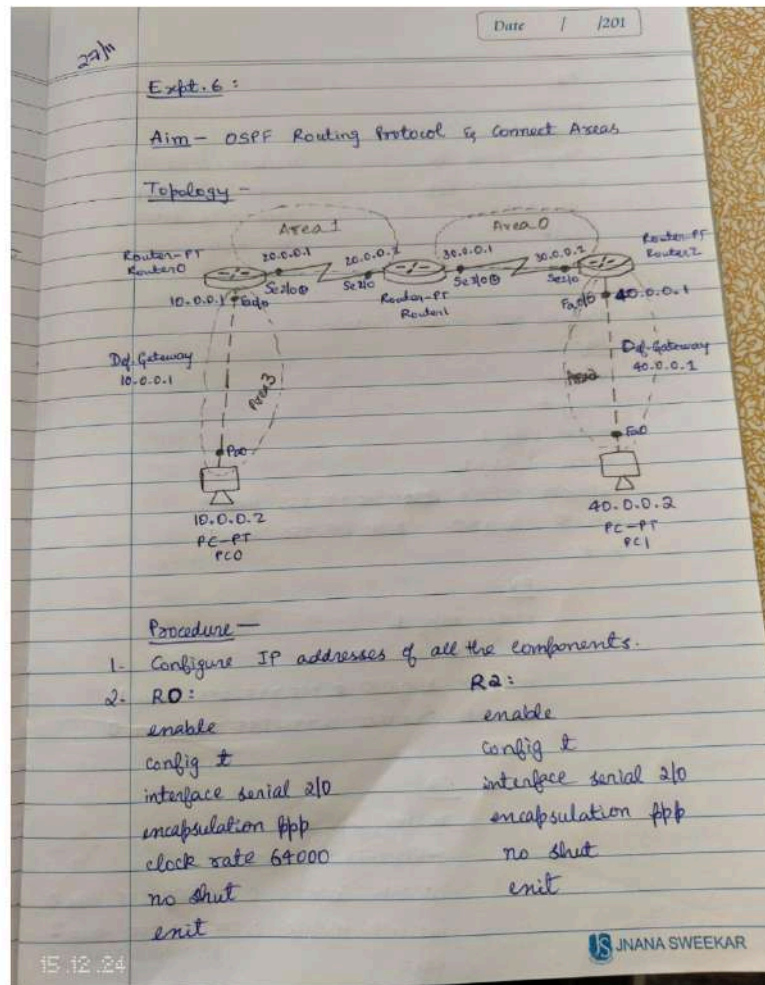 Date / /201
27/11
Expt. 6 :
Aim - OSPF Routing Protocol & Connect Areas
Topology -
Area 1
Area 0
Router-PT
Router0
20.0.0.1
20.0.0.2
30.0.0.1
30.0.0.2
Router-PT
Router2
10.0.0.1
Fa0/0
Se2/0
Se2/0
Router-PT
Router1
Se3/0
Se2/0
Fa0/0
40.0.0.1
Def. Gateway
10.0.0.1
Area 3
Area 2
Def. Gateway
40.0.0.1
Fa0
Fa0
10.0.0.2
PC-PT
PC0
40.0.0.2
PC-PT
PC1
Procedure -
1. Configure IP addresses of all the components.
2. R0:
enable
config t
interface serial 2/0
encapsulation ppp
clock rate 64000
no shut
exit
R2:
enable
config t
interface serial 2/0
encapsulation ppp
no shut
exit
JS JNANA SWEEKAR
15.12.24